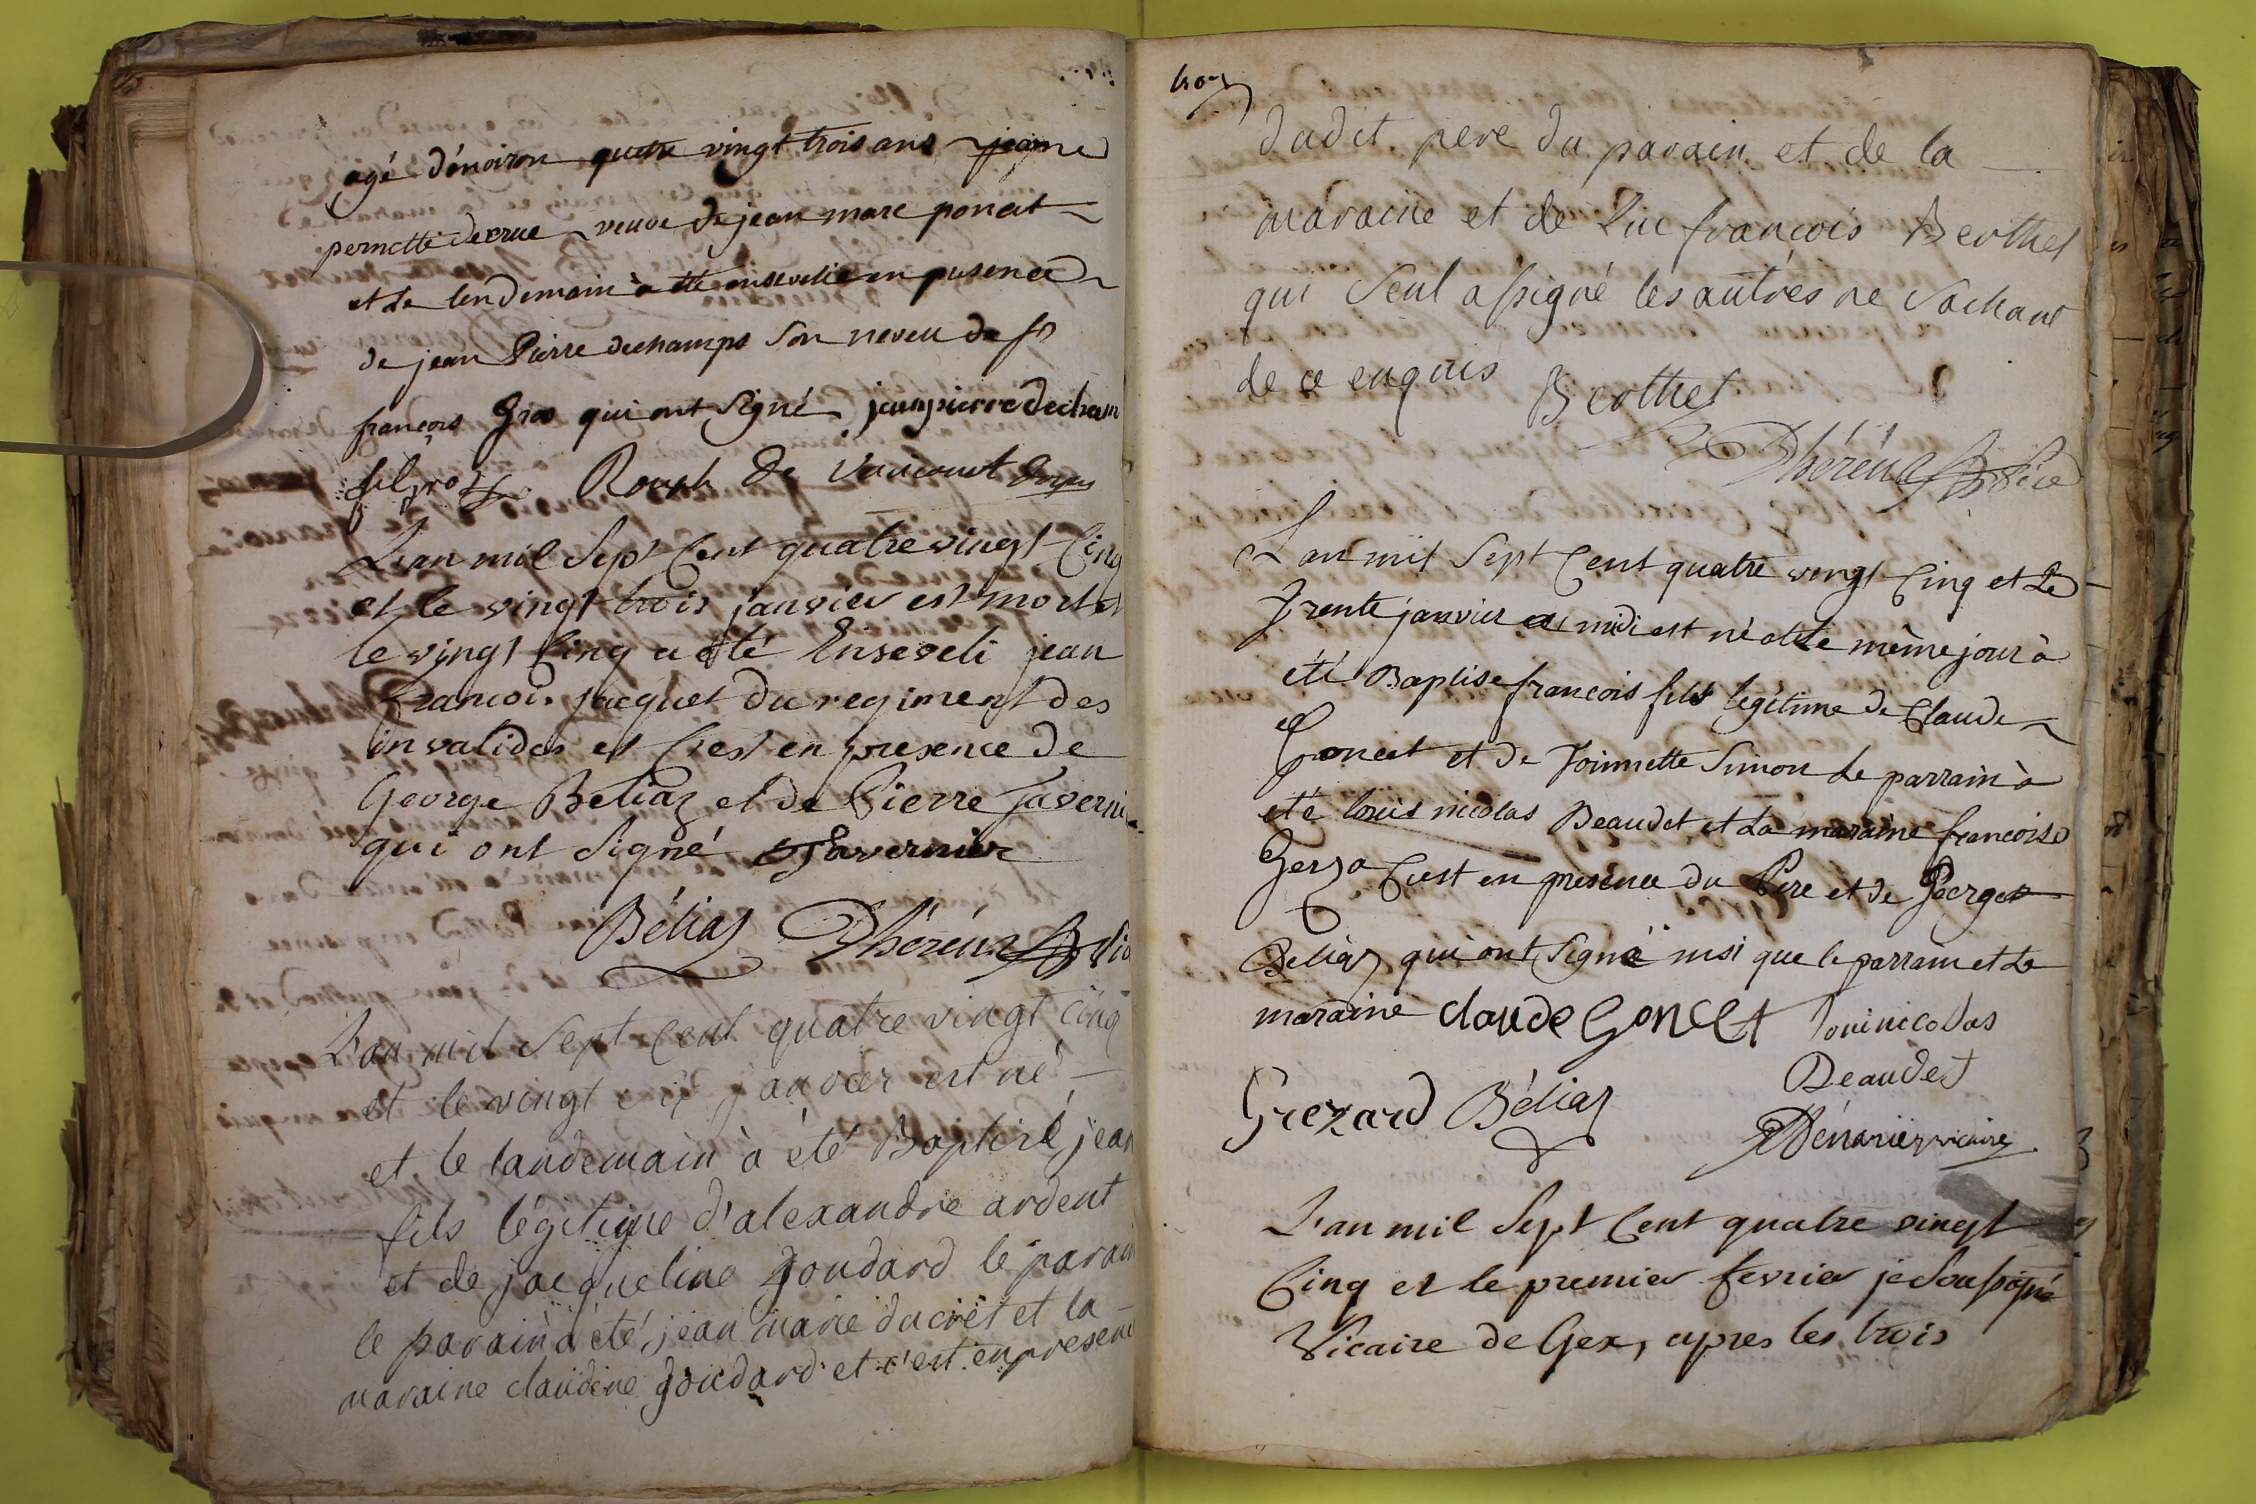 agé d'énviron quatre vingt trois ans jeanne
pernette decrue veuve de jean marc poncet
et Le lendemain à été ensevelie en présence
de jean Pierre dechamps Son neveu de
françois Gros qui ont Signé jeanpierre decham
Rouph de Varicourt
L'an mil Sept Cent quatre vingt Cinq
et le vingt trois janvier est mort et
le vingt Cinq a eté Enseveli jean
francois jacquet du regiment des
invalides et C'est en presence de
George Béliaz et de Pierre Taverni
qui ont Signé Tavernier
Béliaz Dhéréns Vic
L'an mil Sept Cent quatre vingt cinq
et le vingt six janvier est né
et le landemain à été Baptisé jean
fils légitime d'alexandre ardent
et de jacqueline goudard le parain
le parain à été jean marie ducrèt et la
maraine claudine goudard et c'est en presence
trois
dudit pere du parain et de la
maraine et de Luc françois Berthet
qui Seul a signé les autres ne Sachant
de ce enquis Berthet
Vice
L'an mil Sept Cent quatre vingt Cinq et Le
Trente janvier a midi est né et Le même jour à
été Baptise francois fils légitime de Claude
Goncet et de Toinnette Simon Le parrain à
eté louis nicolas Beaudet et La maraine francoise
C'est en présence du Pere et de George
Beliaz qui ont Signé insi que le parrain et La
maraine claude Goncet loui nicolas
Beaudet
Grezard Béliaz
vicaire
L'an mil Sept Cent quatre vingt
Cinq et le premier fevrier je Soussigné
Vicaire de Gex, apres les trois